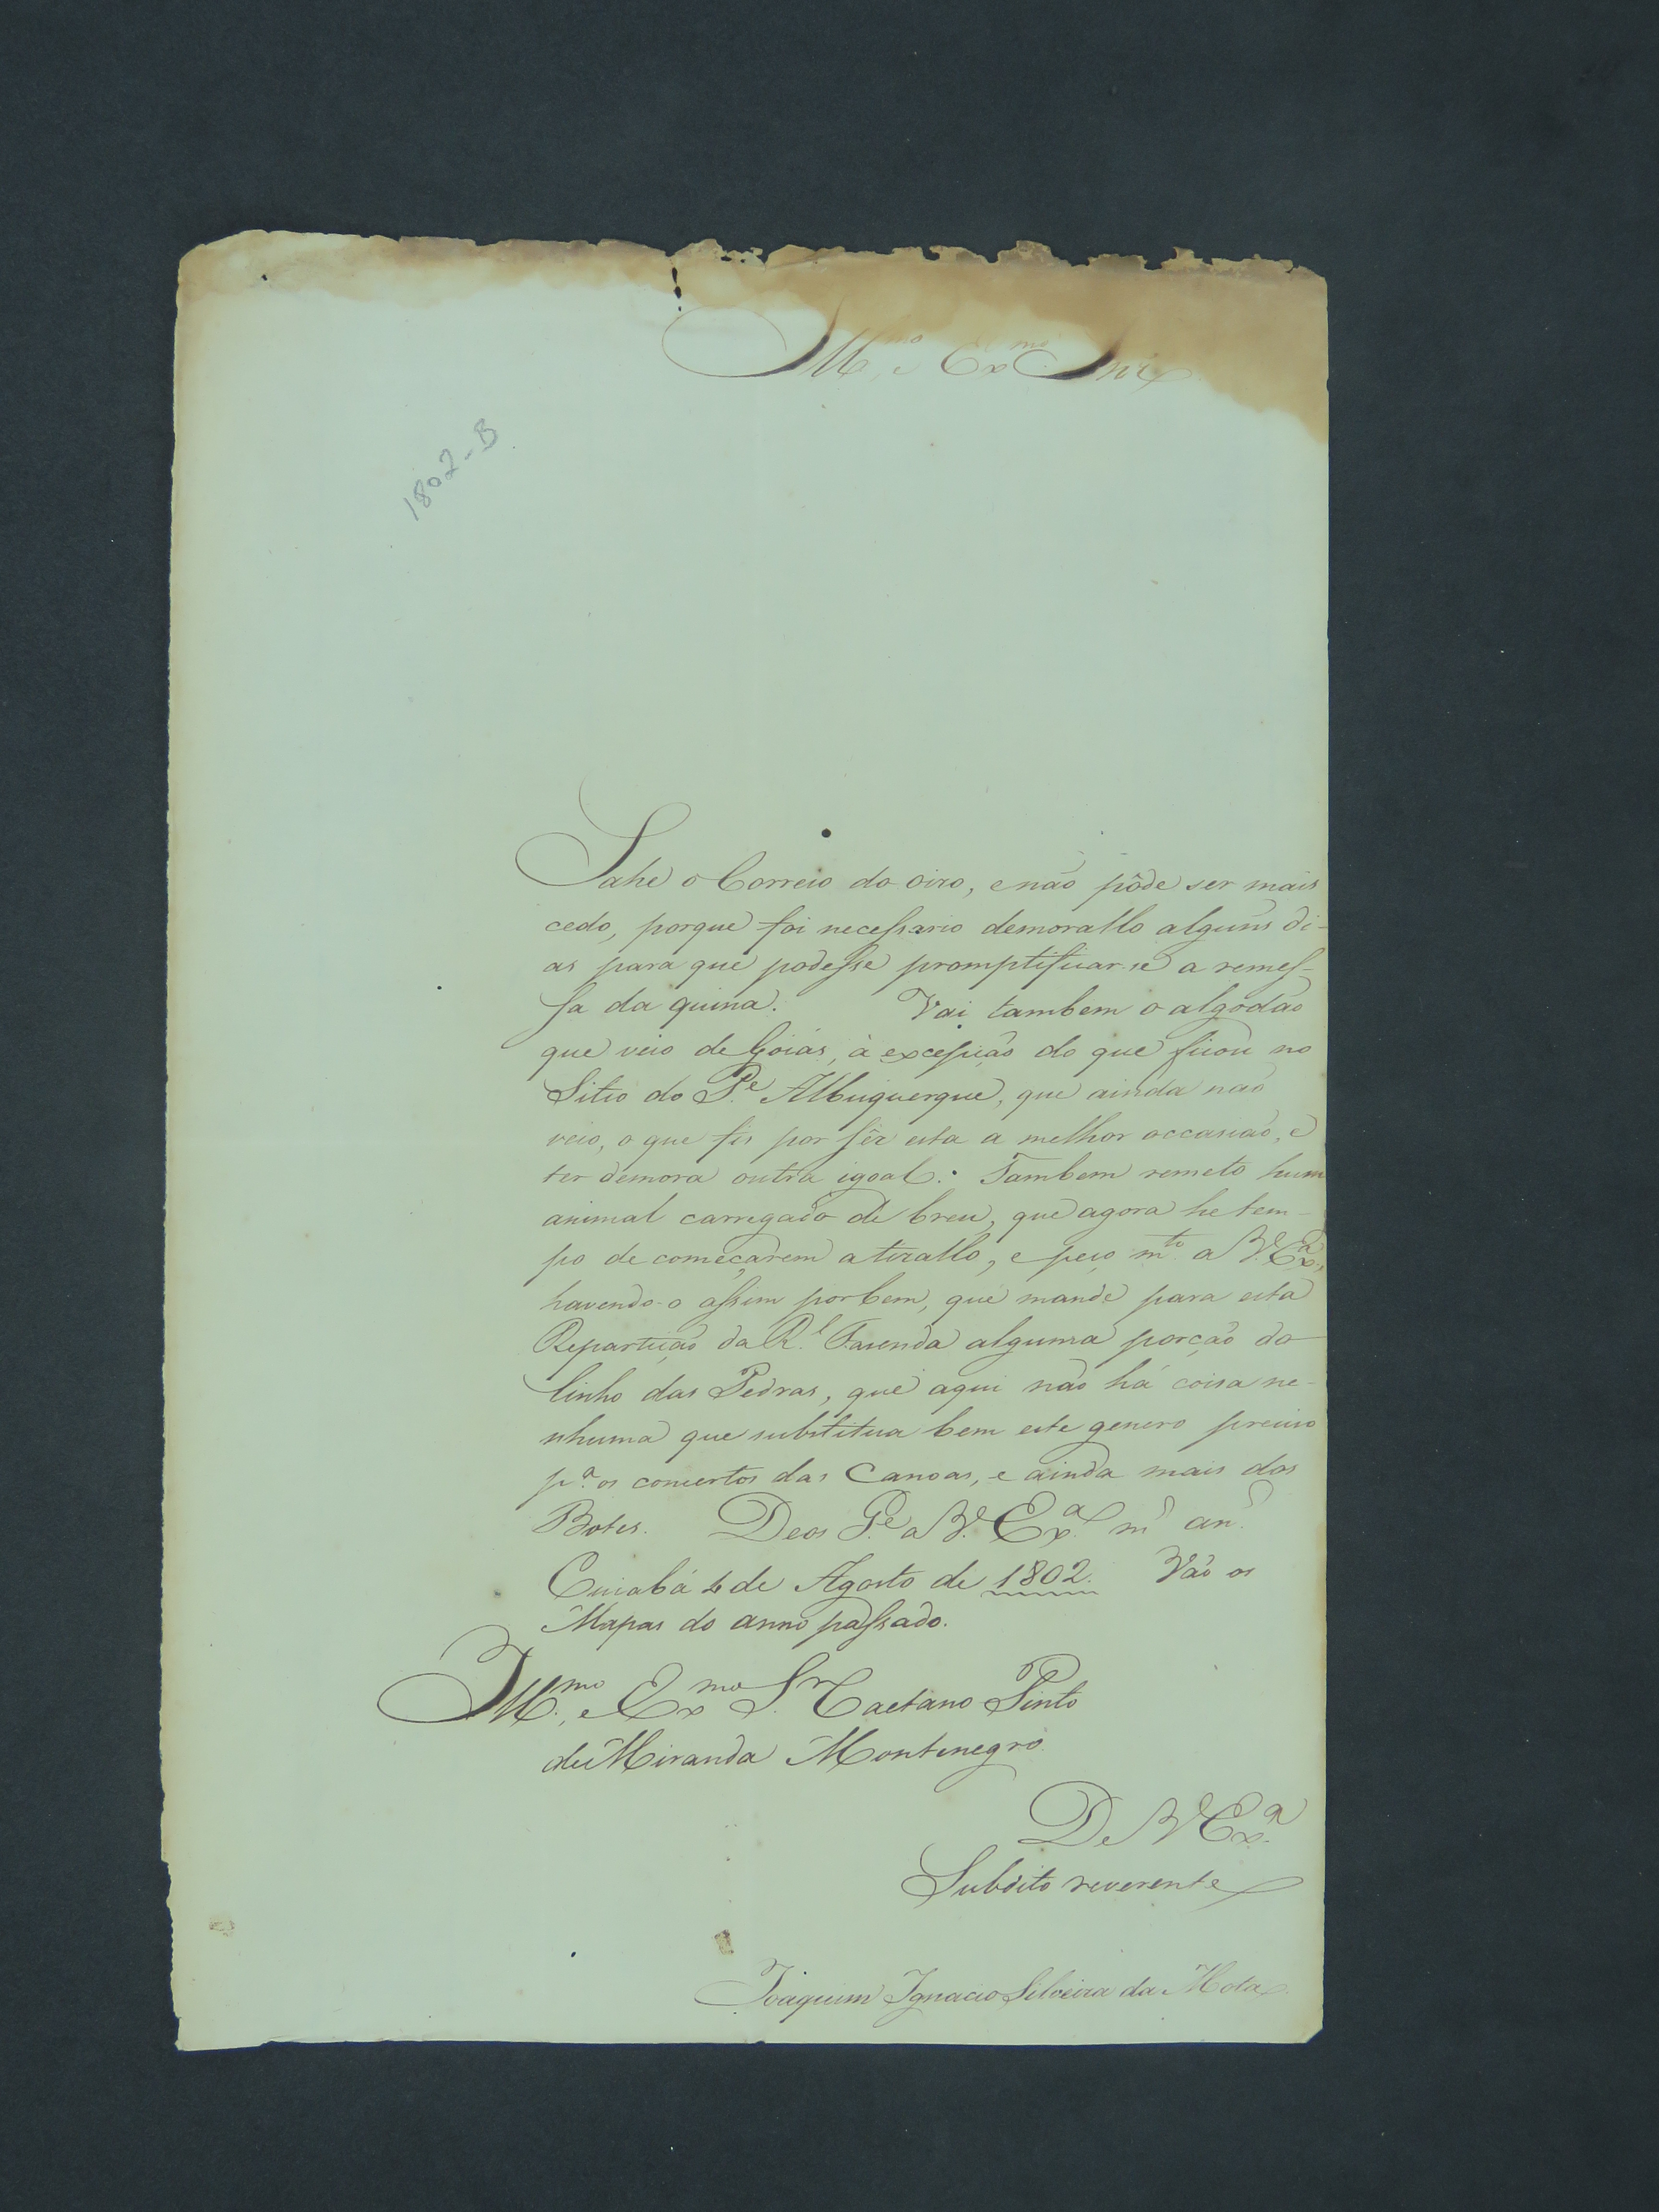 Ill.mo, e Ex.mo Snr
1802-B
Sahe o Correio do oiro, e não pôde ser mais
cedo, porque foi necessario demorallo alguñs di-
as para que podesse promptificar-se a remes-
sa da quina. Vai tambem o algodão
que veio de Goiás, à excepção do que ficou no
Sitio do P.e Albuquerque, que ainda não
veio, o que fis por sêr esta a melhor occasião, e
ter demora outra igoal: Tambem remeto hum
animal carregado de breu, que agora he tem-
po de começarem a tirallo, e peço m.to a V. Ex.a,
havendo-o assim por bem, que mande para esta
Repartição da R.l Fazenda alguma porção do
linho das Pedras, que aqui não há coisa ne-
nhuma que substitua bem este genero preciso
p.a os concertos das Canoas, e ainda mais dos
Botes. Deos G.e a V. Ex.a m.s an.s
Cuiabá 4 de Agosto de 1802. Vão os
Mapas do anno passado.
Ill.mo, e Ex.mo S.r Caetano Pinto
de Miranda Montenegro.
De V Ex.a
Subdito reverente
Joaquim Ignacio Silveira da Mota